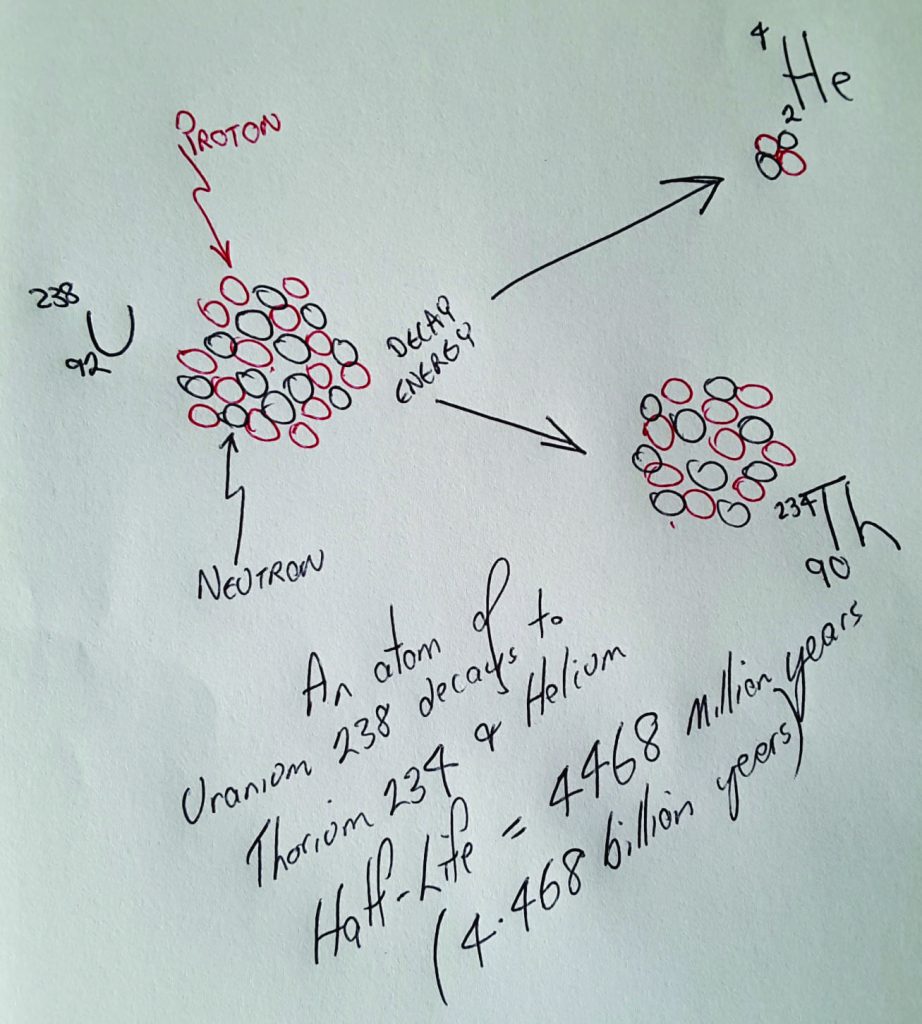 4
He
2
PROTON
238
U
92
DECAY
ENERGY
234
Th
90
NEUTRON
An atom of
Uranium 238 decays to
Thorium 234 & Helium
Half-Life = 4468 Million years
(4.468 billion years)